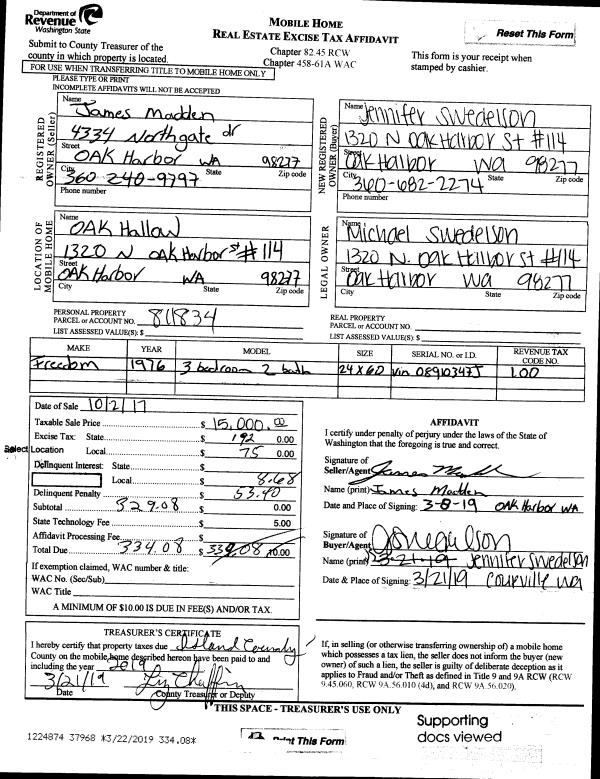 Department of
Revenue
Washington State
MOBILE HOME
REAL ESTATE EXCISE TAX AFFIDAVIT
Chapter 82.45 RCW
Chapter 458-61A WAC
Reset This Form
Submit to County Treasurer of the
county in which property is located.
This form is your receipt when
stamped by cashier.
FOR USE WHEN TRANSFERRING TITLE TO MOBILE HOME ONLY
PLEASE TYPE OR PRINT
INCOMPLETE AFFIDAVITS WILL NOT BE ACCEPTED
REGISTERED
OWNER (Seller)
Name
James Madden
4334 Northgate dr
Street
OAK Harbor WA 98277
City State Zip code
360-240-9797
Phone number
NEW REGISTERED
OWNER (Buyer)
Name
Jennifer Swedelson
1320 N Oak Harbor St #114
Street
Oak Harbor Wa 98277
City State Zip code
360-682-2274
Phone number
LOCATION OF
MOBILE HOME
Name
OAK Hallow
1320 N Oak Harbor st #114
Street
Oak Harbor WA 98277
City State Zip code
LEGAL OWNER
Name
Michael Swedelson
1320 N. Oak Harbor St #114
Street
Oak Harbor Wa 98277
City State Zip code
PERSONAL PROPERTY
PARCEL or ACCOUNT NO. 811834
LIST ASSESSED VALUE(S): $
REAL PROPERTY
PARCEL or ACCOUNT NO.
LIST ASSESSED VALUE(S): $
MAKE YEAR MODEL SIZE SERIAL NO. or I.D. REVENUE TAX CODE NO.
Freedom 1976 3 bedroom 2 bath 24 X 60 Vin 08910347J 1.00
Date of Sale 10/2/17
Taxable Sale Price $ 15,000.00
Excise Tax: State $ 192 0.00
Select Location Local $ 75 0.00
Delinquent Interest: State $
Local $ 8.68
Delinquent Penalty $ 53.40
Subtotal 329.08 $ 0.00
State Technology Fee $ 5.00
Affidavit Processing Fee $
Total Due 334.08 $ 339.08 10.00
If exemption claimed, WAC number & title:
WAC No. (Sec/Sub)
WAC Title
A MINIMUM OF $10.00 IS DUE IN FEE(S) AND/OR TAX.
AFFIDAVIT
I certify under penalty of perjury under the laws of the State of
Washington that the foregoing is true and correct.
Signature of
Seller/Agent James Madden
Name (print) James Madden
Date and Place of Signing: 3-8-19 OAK Harbor WA
Signature of
Buyer/Agent
Name (print) 3-21-19 Jennifer Swedelson
Date & Place of Signing: 3/21/19 Coupville wa
TREASURER'S CERTIFICATE
I hereby certify that property taxes due Island County
County on the mobile home described hereon have been paid to and
including the year 2019
3/21/19
Date County Treasurer or Deputy
If, in selling (or otherwise transferring ownership of) a mobile home
which possesses a tax lien, the seller does not inform the buyer (new
owner) of such a lien, the seller is guilty of deliberate deception as it
applies to Fraud and/or Theft as defined in Title 9 and 9A RCW (RCW
9.45.060, RCW 9A.56.010 (4d), and RCW 9A.56.020).
THIS SPACE - TREASURER'S USE ONLY
1224874 37968 *3/22/2019 334.08*
Print This Form
Supporting
docs viewed